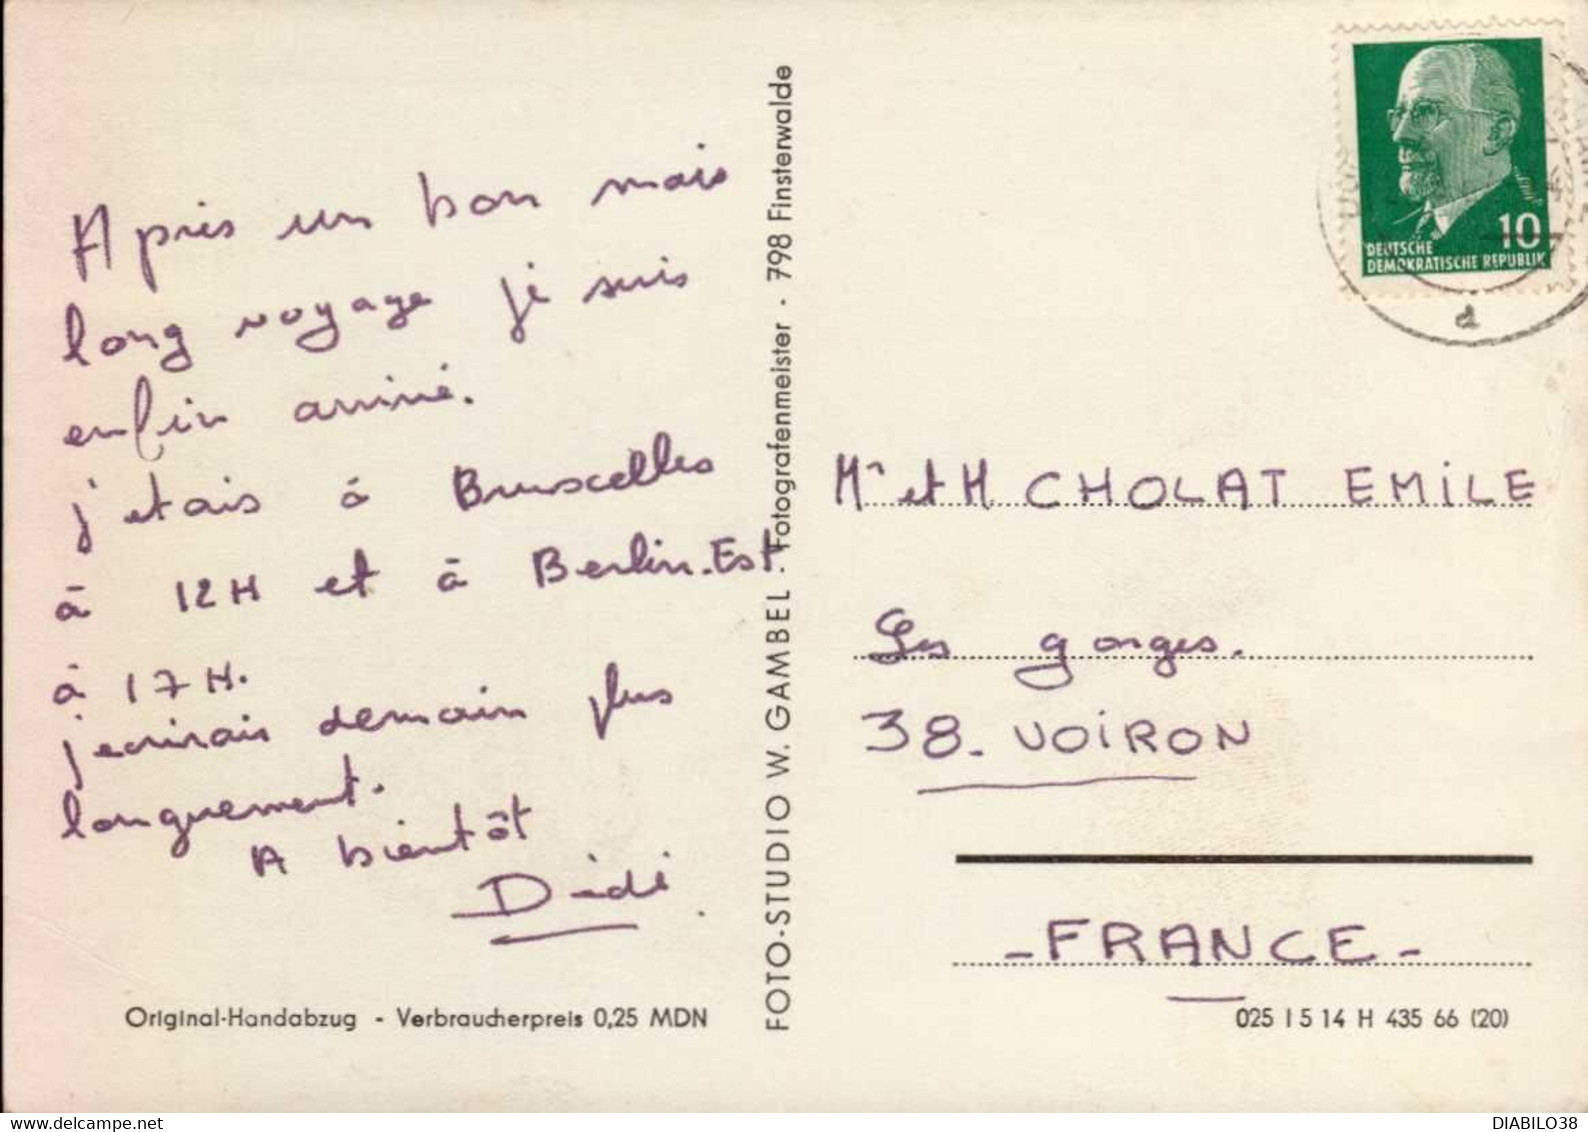 Après un bon mais
long voyage je suis
enfin arrivé.
j'etais à Bruxelles
à 12H et à Berlin-Est
à 17H.
j'ecrirais demain plus
longuement.
A bientôt
Dédé.
Original-Handabzug - Verbraucherpreis 0,25 MDN
FOTO-STUDIO W. GAMBEL · Fotografenmeister · 798 Finsterwalde
10
DEUTSCHE
DEMOKRATISCHE REPUBLIK
d
Mr et M CHOLAT EMILE
Les gorges.
38. VOIRON
- FRANCE -
025 I 5 14 H 435 66 (20)
www.delcampe.net
DIABILO38